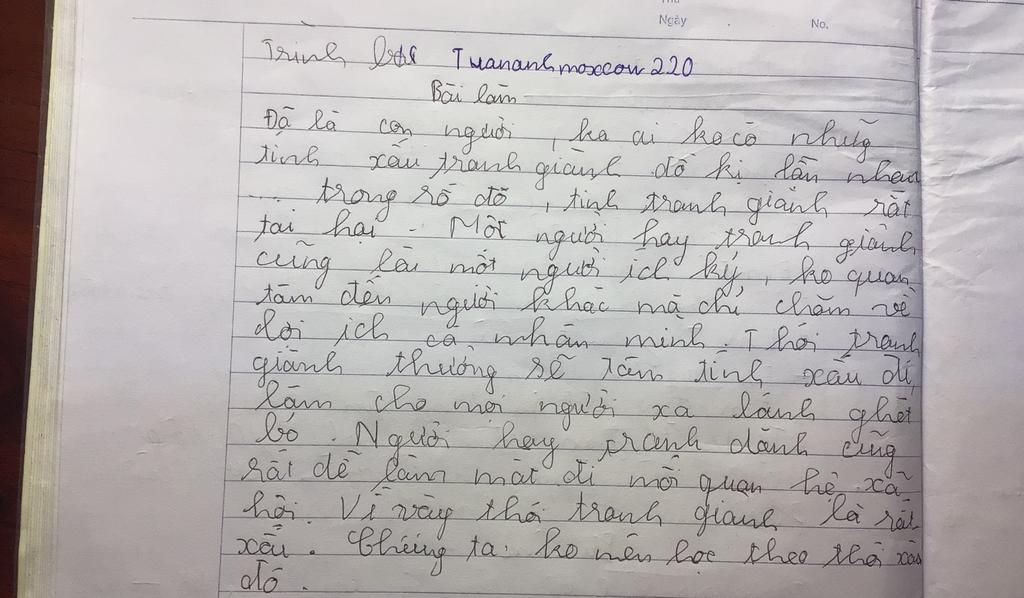 Ngày No.
Trinh Tuananhmoxcow220
Bài làm
Đã là con người, ko ai ko có những
tính xấu tranh giành đố kị lẫn nhau
... trong số đó, tính tranh giành rất
tai hại. Một người hay tranh giành
cũng là một người ích kỷ, ko quan
tâm đến người khác mà chỉ chăm về
lợi ích cá nhân mình. Thói tranh
giành thường sẽ làm tính xấu đi,
làm cho mọi người xa lánh ghét
bỏ. Người hay tranh dành cũng
rất dễ làm mất đi mối quan hệ xã
hội. Vì vậy thói tranh giành là rất
xấu. Chúng ta ko nên học theo thói xấu
đó.